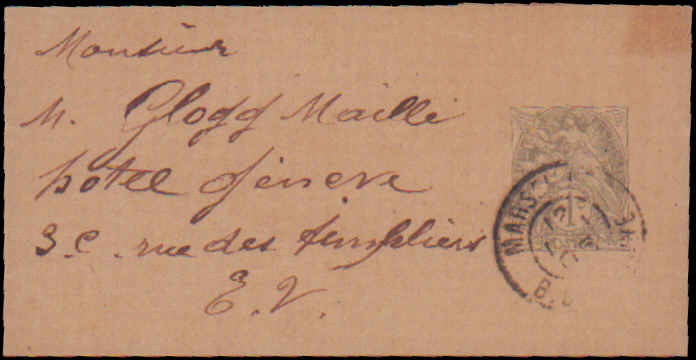 Monsieur
M. Glogg Maille
hotel Géneve
3.c. rue des templiers
E.V.
MARSE
B.